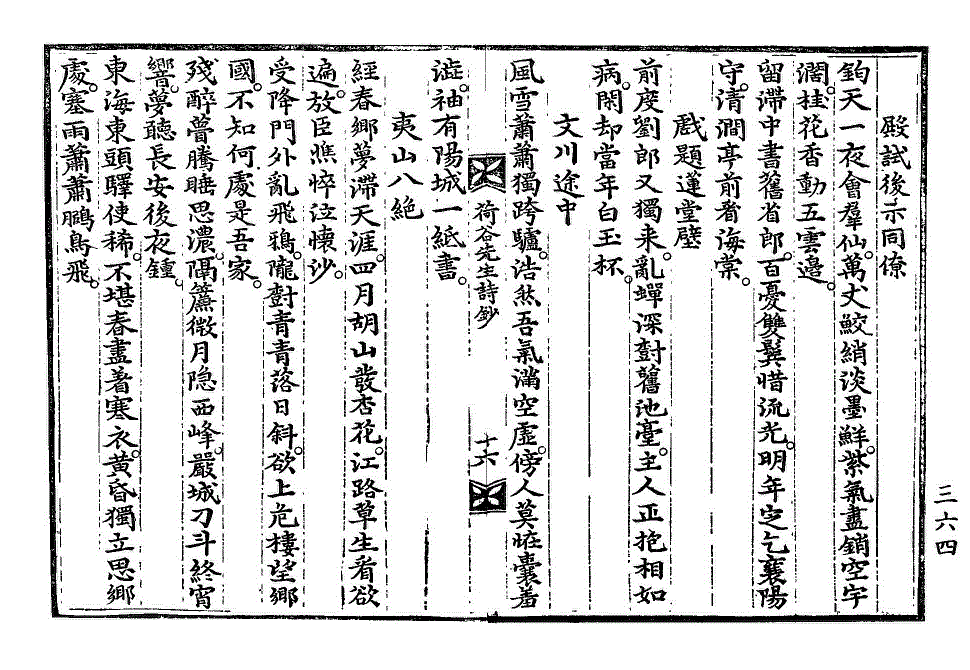 殿試後示同僚
鈞天一夜會羣仙。萬丈鮫綃淡墨鮮。紫氣盡銷空宇
濶。桂花香動五雲邊。
留滯中書舊省郎。百憂雙鬂惜流光。明年定乞襄陽
守。淸澗亭前看海棠。
戱題蓮堂壁
前度劉郎又獨來。亂蟬深對舊池臺。主人正抱相如
病。閑却當年白玉杯。
文川途中
風雪蕭蕭獨跨驢。浩然吾氣滿空虛。傍人莫怪囊羞
荷谷先生詩鈔
十六
澁。袖有陽城一紙書。
夷山八絶
經春鄉夢滯天涯。四月胡山發杏花。江路草生看欲
遍。放臣憔悴泣懷沙。
受降門外亂飛鴉。隴對靑靑落日斜。欲上危樓望鄉
國。不知何處是吾家。
殘醉瞢騰睡思濃。隔簾微月隐西峰。嚴城刀斗終宵
響。夢聽長安後夜鍾。
東海東頭驛使稀。不堪春盡著寒衣。黃昏獨立思鄉
處。塞雨蕭蕭鵬鳥飛。
三六四